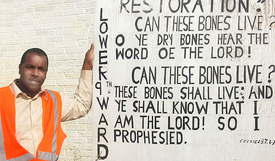 RESTORATION:
CAN THESE BONES LIVE?
O YE DRY BONES HEAR THE
WORD OE THE LORD!
CAN THESE BONES LIVE?
THESE BONES SHALL LIVE: AND
YE SHALL KNOW THAT I
AM THE LORD! SO I
PROPHESIED.
LOWER 9th WARD